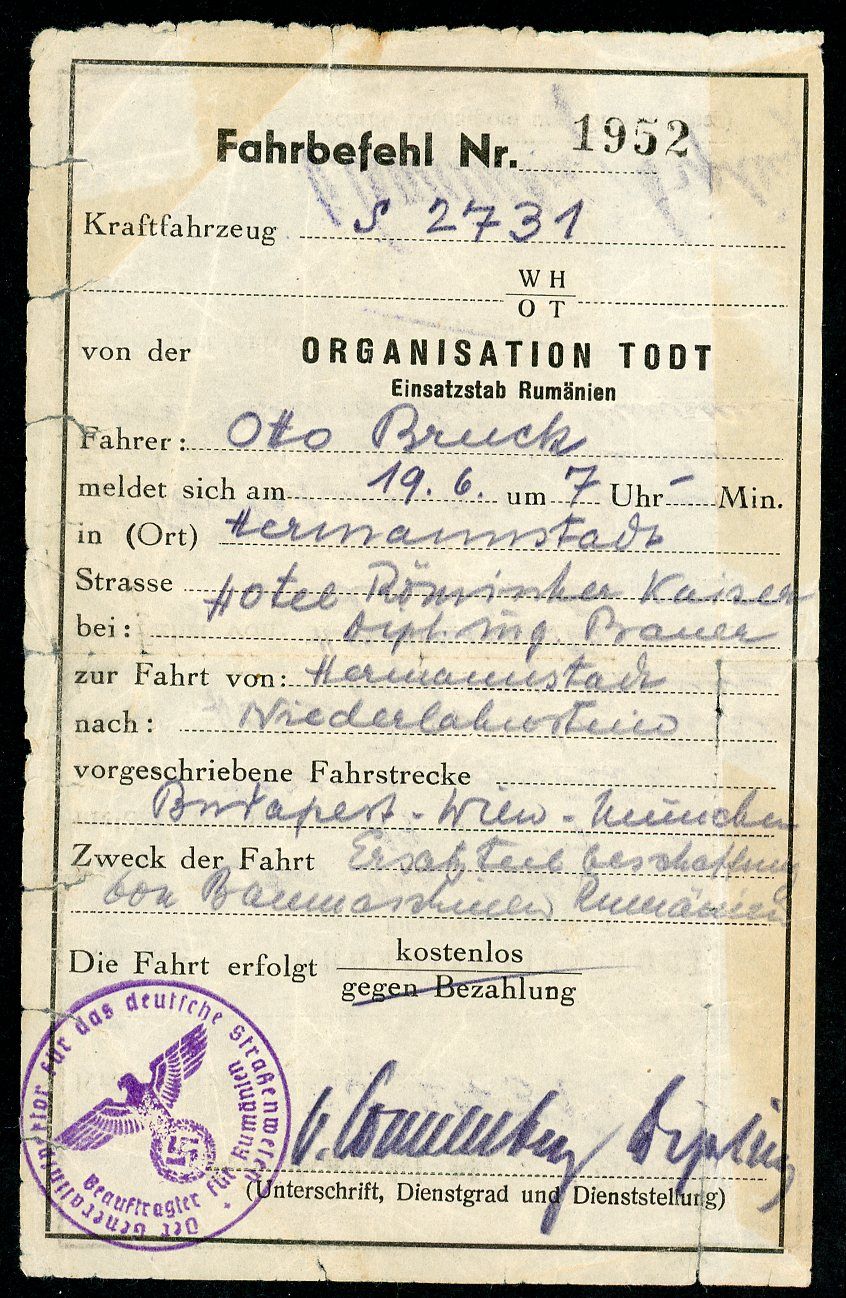 Fahrbefehl Nr. 1952
Kraftfahrzeug S 2731
W H
O T
von der ORGANISATION TODT
Einsatzstab Rumänien
Fahrer: Otto Bruck
meldet sich am 19. 6. um 7 Uhr - Min.
in (Ort) Hermannstadt
Strasse Hotel Römischer Kaiser
bei: Dipl. Ing. Brauer
zur Fahrt von: Hermannstadt
nach: Niederlahnstein
vorgeschriebene Fahrstrecke
Budapest - Wien - München
Zweck der Fahrt Ersatzteilbeschaffung
von Baumaschinen Rumänien
Die Fahrt erfolgt kostenlos
gegen Bezahlung
Der Generalinspektor für das deutsche Straßenwesen
Beauftragter für Rumänien
Dipl. Ing
(Unterschrift, Dienstgrad und Dienststellung)